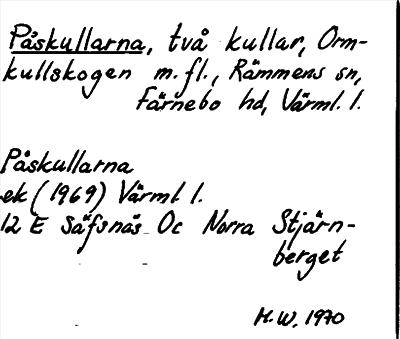 Påskullarna, två kullar, Orm-
kullskogen m.fl., Rämmens sn,
Färnebo hd, Värml. l.
Påskullarna
ek (1969) Värml l.
12 E Säfsnäs Oc Norra Stjärn-
berget
H.W. 1970